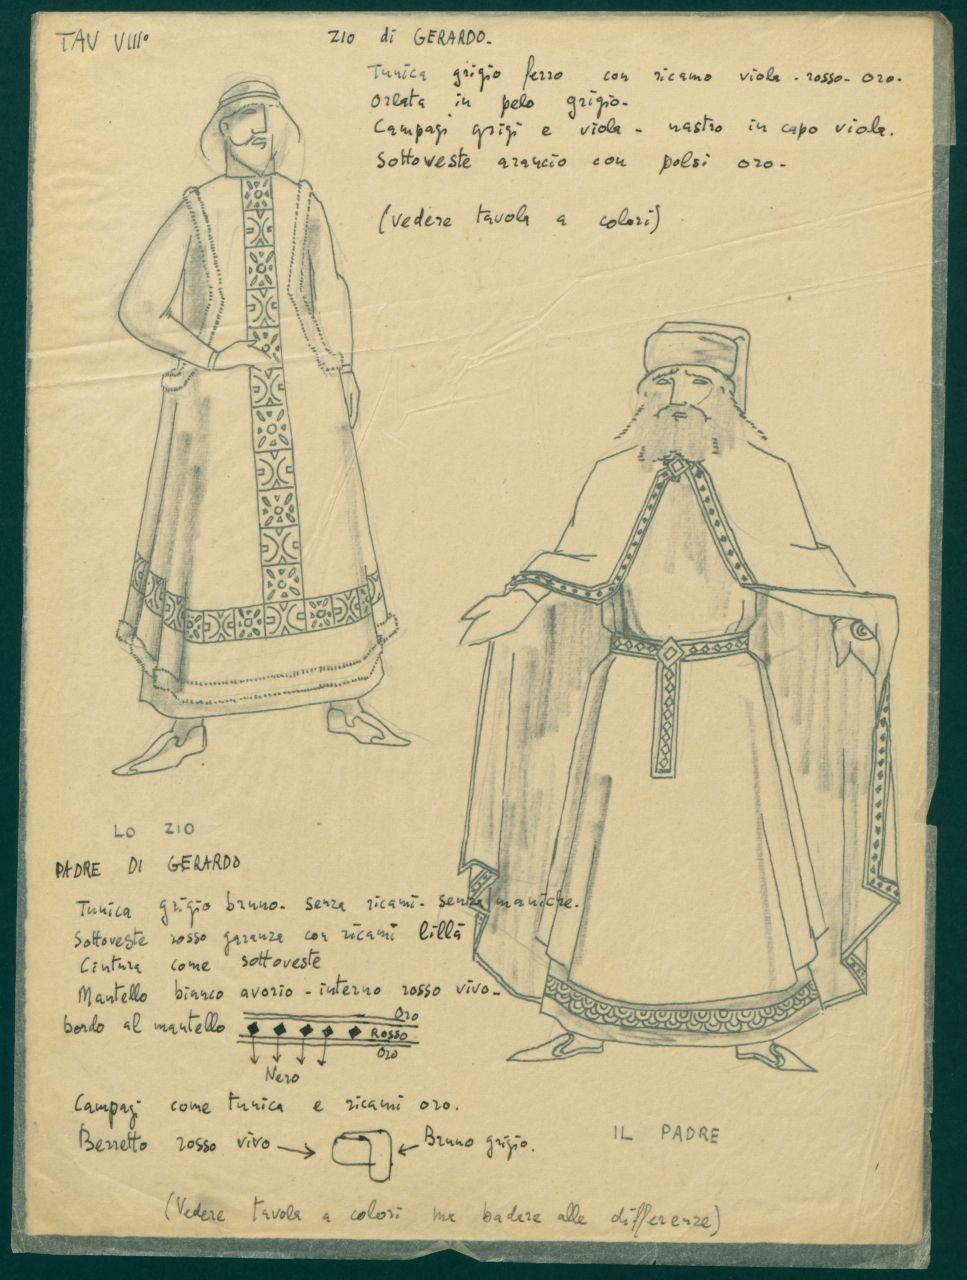 TAV VIIIº
ZIO di GERARDO.
Tunica grigio ferro con ricamo viola - rosso - oro.
Orlata in pelo grigio.
Campagi grigi e viola - nastro in capo viola.
Sottoveste arancio con polsi oro.
(vedere tavola a colori)
LO ZIO
PADRE DI GERARDO
Tunica grigio bruno. senza ricami. senza maniche.
Sottoveste rosso garanza con ricami lillà
Cintura come sottoveste
Mantello bianco avorio - interno rosso vivo.
bordo al mantello
Oro
Rosso
Oro
Nero
Campagi come tunica e ricami oro.
Berretto rosso vivo
Bruno grigio.
IL PADRE
(Vedere tavola a colori ma badare alle differenze)